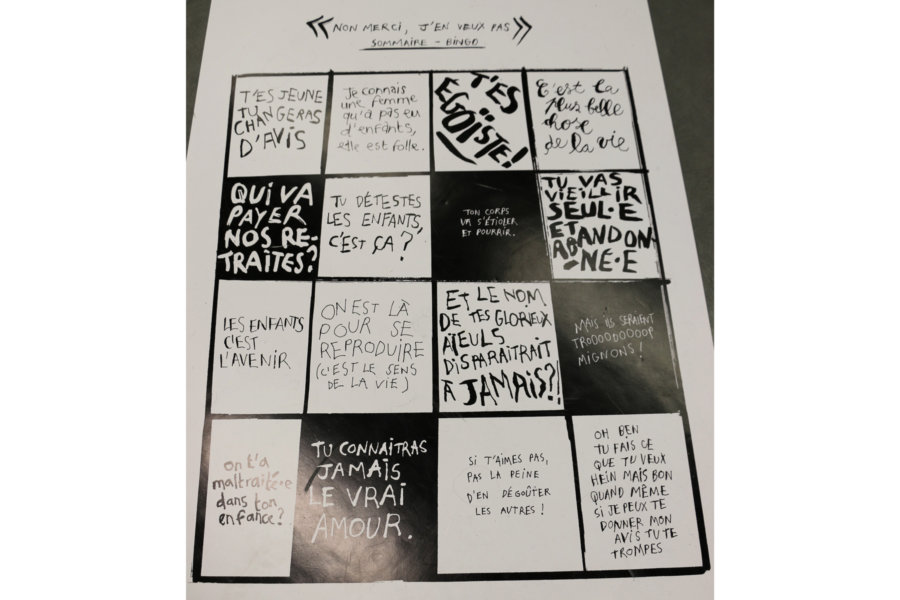 « NON MERCI, J'EN VEUX PAS »
SOMMAIRE - BINGO
T'ES JEUNE
TU
CHANGERAS
D'AVIS
Je connais
une femme
qu'a pas eu
d'enfants,
elle est folle.
T'ES
EGOÏSTE!
C'est la
plus belle
chose
de la vie
QUI VA
PAYER
NOS RE-
TRAITES?
TU DÉTESTES
LES ENFANTS,
C'EST ÇA?
TON CORPS
VA S'ÉTIOLER
ET POURRIR.
TU VAS
VIEILLIR
SEUL·E
ET
ABANDON-
NÉ·E
LES ENFANTS
C'EST
L'AVENIR
ON EST LÀ
POUR SE
REPRODUIRE
(C'EST LE SENS
DE LA VIE)
ET LE NOM
DE TES GLORIEUX
AÏEULS
DISPARAÎTRAIT
À JAMAIS?!
MAIS ILS SERAIENT
TROOOOOOOOP
MIGNONS!
on t'a
maltraité·e
dans ton
enfance?
TU CONNAITRAS
JAMAIS
LE VRAI
AMOUR.
SI T'AIMES PAS,
PAS LA PEINE
D'EN DÉGOÛTER
LES AUTRES!
OH BEN
TU FAIS CE
QUE TU VEUX
HEIN MAIS BON
QUAND MÊME
SI JE PEUX TE
DONNER MON
AVIS TU TE
TROMPES